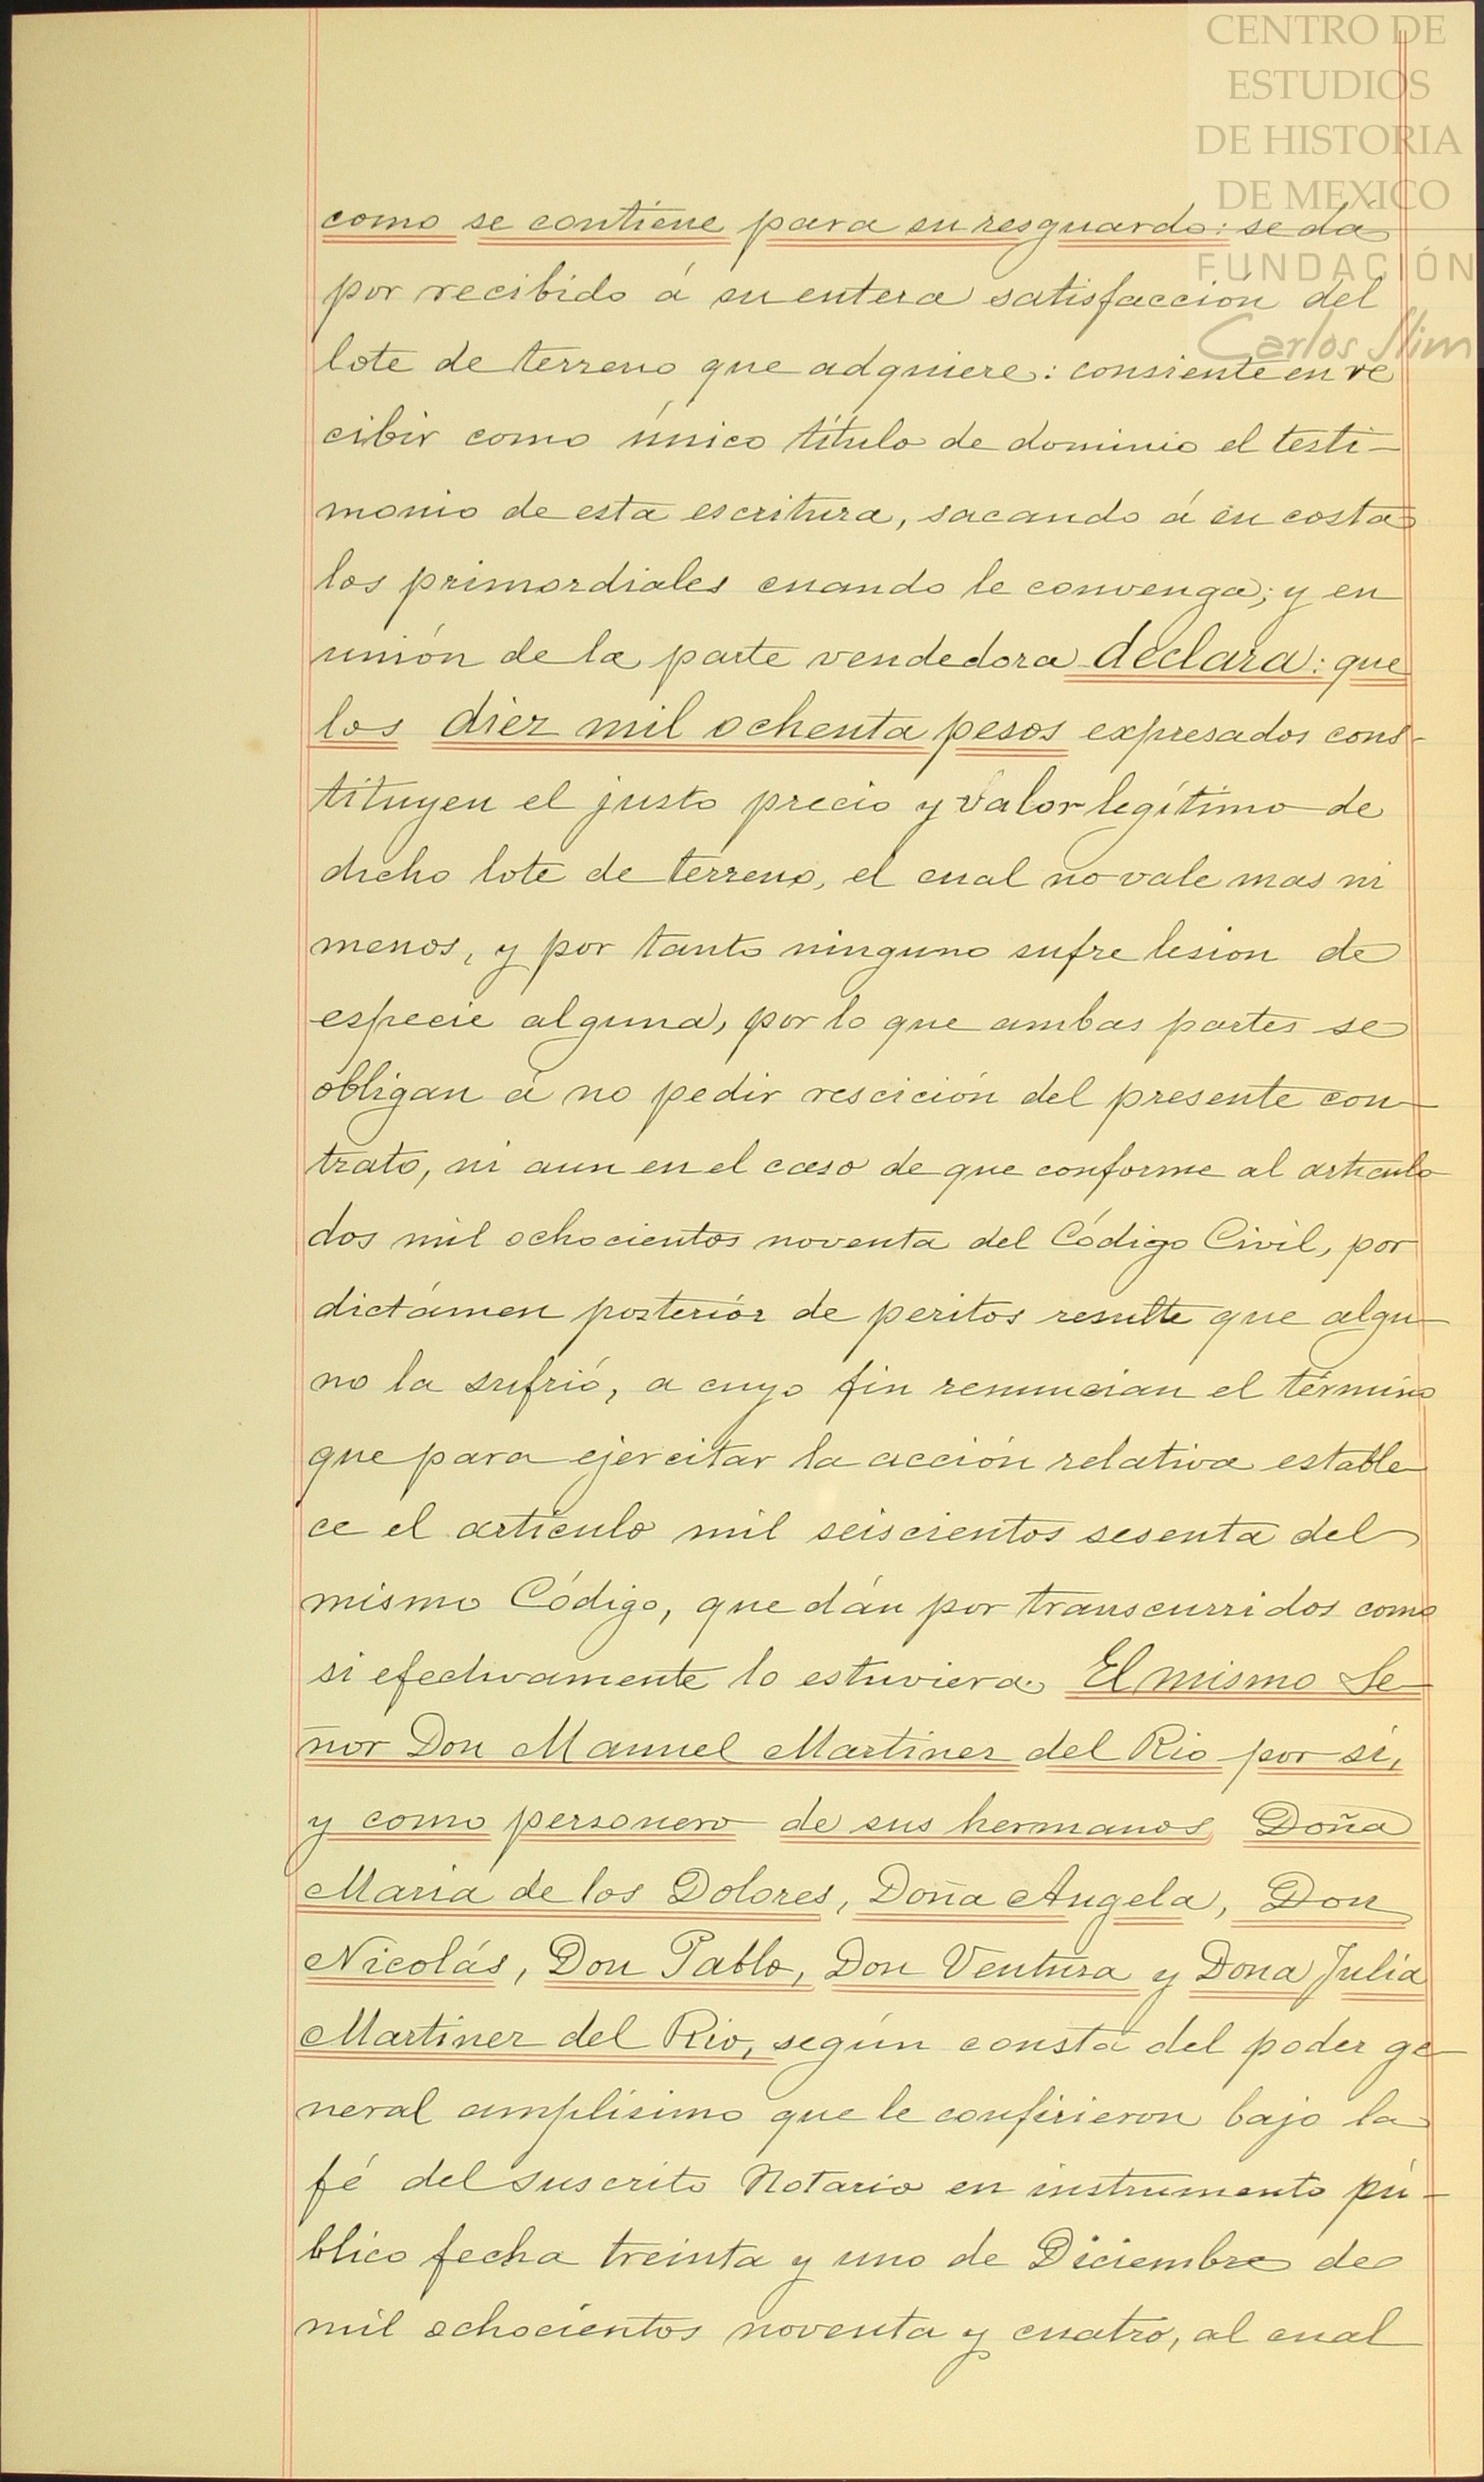 CENTRO DE
ESTUDIOS
DE HISTORIA
DE MEXICO
FUNDACIÓN
Carlos Slim
como se contiene para su resguardo: se da
por recibido á su entera satisfacción del
lote de terreno que adquiere: consiente en re
cibir como único título de dominio el testi-
monio de esta escritura, sacando á su costa
los primordiales cuando le convenga; y en
unión de la parte vendedora declara: que
los diez mil ochenta pesos expresados cons-
tituyen el justo precio y valor legítimo de
dicho lote de terreno, el cual no vale mas ni
menos, y por tanto ninguno sufre lesion de
especie alguna, por lo que ambas partes se
obligan á no pedir rescición del presente con-
trato, ni aun en el caso de que conforme al artículo
dos mil ochocientos noventa del Código Civil, por
dictámen posteriór de peritos resulte que algu-
no la sufrió, a cuyo fin renuncian el término
que para ejercitar la acción relativa estable-
ce el artículo mil seiscientos sesenta del
mismo Código, que dán por transcurridos como
si efectivamente lo estuviera. El mismo Se-
ñor Don Manuel Martinez del Rio por sí,
y como personero de sus hermanos Doña
Maria de los Dolores, Doña Angela, Don
Nicolás, Don Pablo, Don Ventura y Dona Julia
Martinez del Rio, según consta del poder ge-
neral amplísimo que le confirieron bajo la
fé del suscrito Notario en instrumento pú-
blico fecha treinta y uno de Diciembre de
mil ochocientos noventa y cuatro, al cual